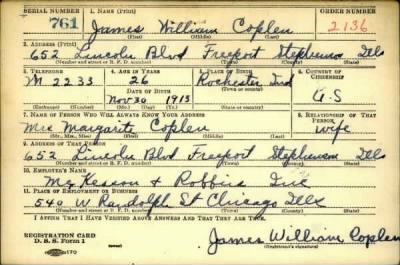 SERIAL NUMBER 1. NAME (Print) ORDER NUMBER
761 James William Coplen 2136
(First) (Middle) (Last)
2. ADDRESS (Print)
652 Lincoln Blvd Freeport Stephenson Ills
(Number and street or R. F. D. number) (Town) (County) (State)
3. TELEPHONE 4. AGE IN YEARS 5. PLACE OF BIRTH 6. COUNTRY OF CITIZENSHIP
M 2233 26 Rochester Ind
DATE OF BIRTH (Town or county)
Nov 30 1913 U.S
(Exchange) (Number) (Mo.) (Day) (Yr.) (State or country)
7. NAME OF PERSON WHO WILL ALWAYS KNOW YOUR ADDRESS 8. RELATIONSHIP OF THAT PERSON
Mrs Margarite Coplen wife
(Mr., Mrs., Miss) (First) (Middle) (Last)
9. ADDRESS OF THAT PERSON
652 Lincoln Blvd Freeport Stephenson Ills
(Number and street or R. F. D. number) (Town) (County) (State)
10. EMPLOYER'S NAME
McKesson & Robbins Inc
11. PLACE OF EMPLOYMENT OR BUSINESS
540 W Randolph St Chicago Ills
(Number and street or R. F. D. number) (Town) (County) (State)
I AFFIRM THAT I HAVE VERIFIED ABOVE ANSWERS AND THAT THEY ARE TRUE.
REGISTRATION CARD
D. S. S. Form 1 James William Coplen
(Registrant's signature)